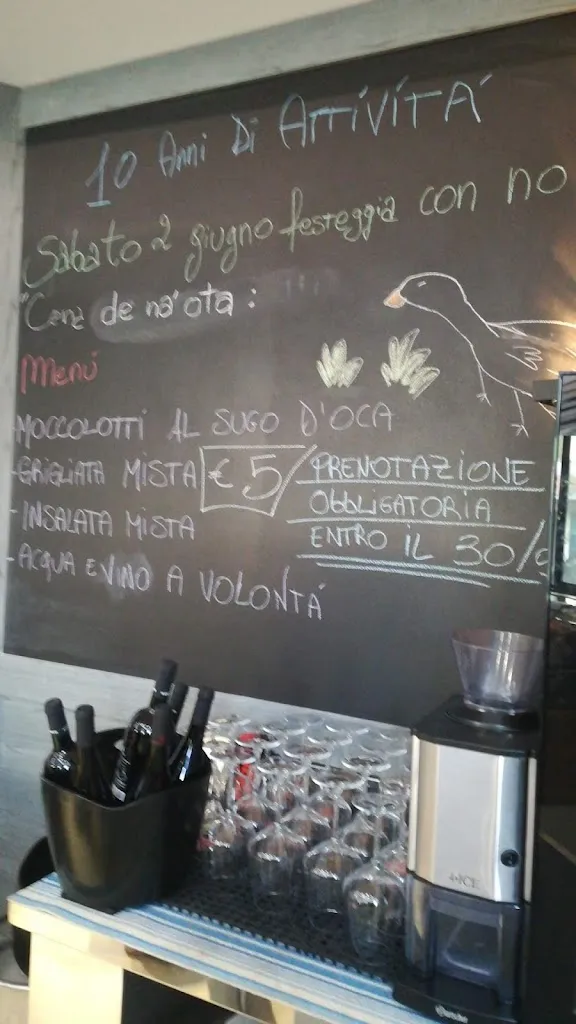 10 Anni Di ATTIVITA'
Sabato 2 giugno festeggia con no
"Cena de na' ota :
Menú
-MOCCOLOTTI AL SUGO D'OCA
-GRIGLIATA MISTA € 5
-INSALATA MISTA
-ACQUA E VINO A VOLONTA'
PRENOTAZIONE
OBBLIGATORIA
ENTRO IL 30/
ICE